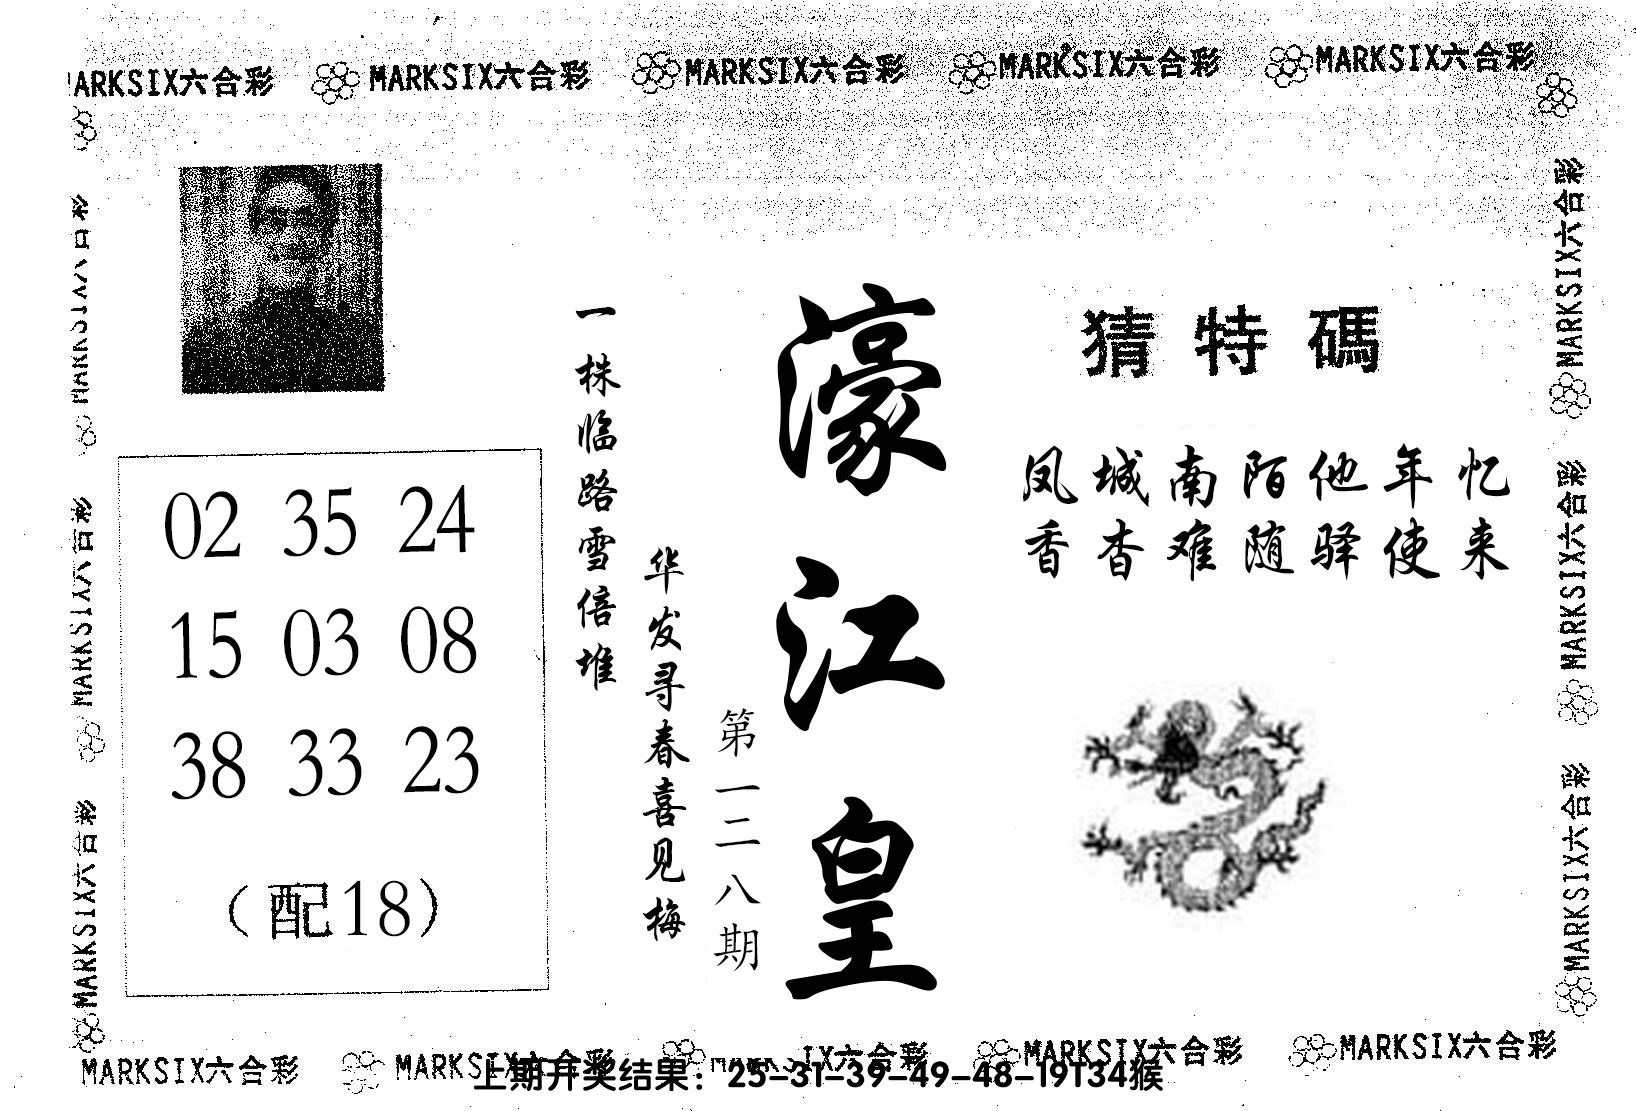 MARKSIX六合彩 MARKSIX六合彩 MARKSIX六合彩 MARKSIX六合彩 MARKSIX六合彩
猜特碼
凤城南陌他年忆
香杳难随驿使来
濠江皇
第一二八期
华发寻春喜见梅
一株临路雪倍堆
02 35 24
15 03 08
38 33 23
（配18）
MARKSIX六合彩
MARKSIX六合彩
MARKSIX六合彩
MARKSIX六合彩
MARKSIX六合彩
MARKSIX六合彩
MARKSIX六合彩 MARKSIX六合彩 MARKSIX六合彩 MARKSIX六合彩 MARKSIX六合彩
上期开奖结果：25-31-39-49-48-19T34猴